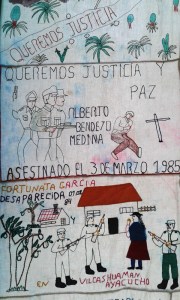 QUEREMOS JUSTICIA
QUEREMOS JUSTICIA Y
PAZ
ALBERTO
BENDEZU
MEDINA
ASESINADO EL 3 DE MARZO 1985
FORTUNATA GARCIA
DESAPARECIDA
84
EN
VILCASHUAMAN
AYACUCHO